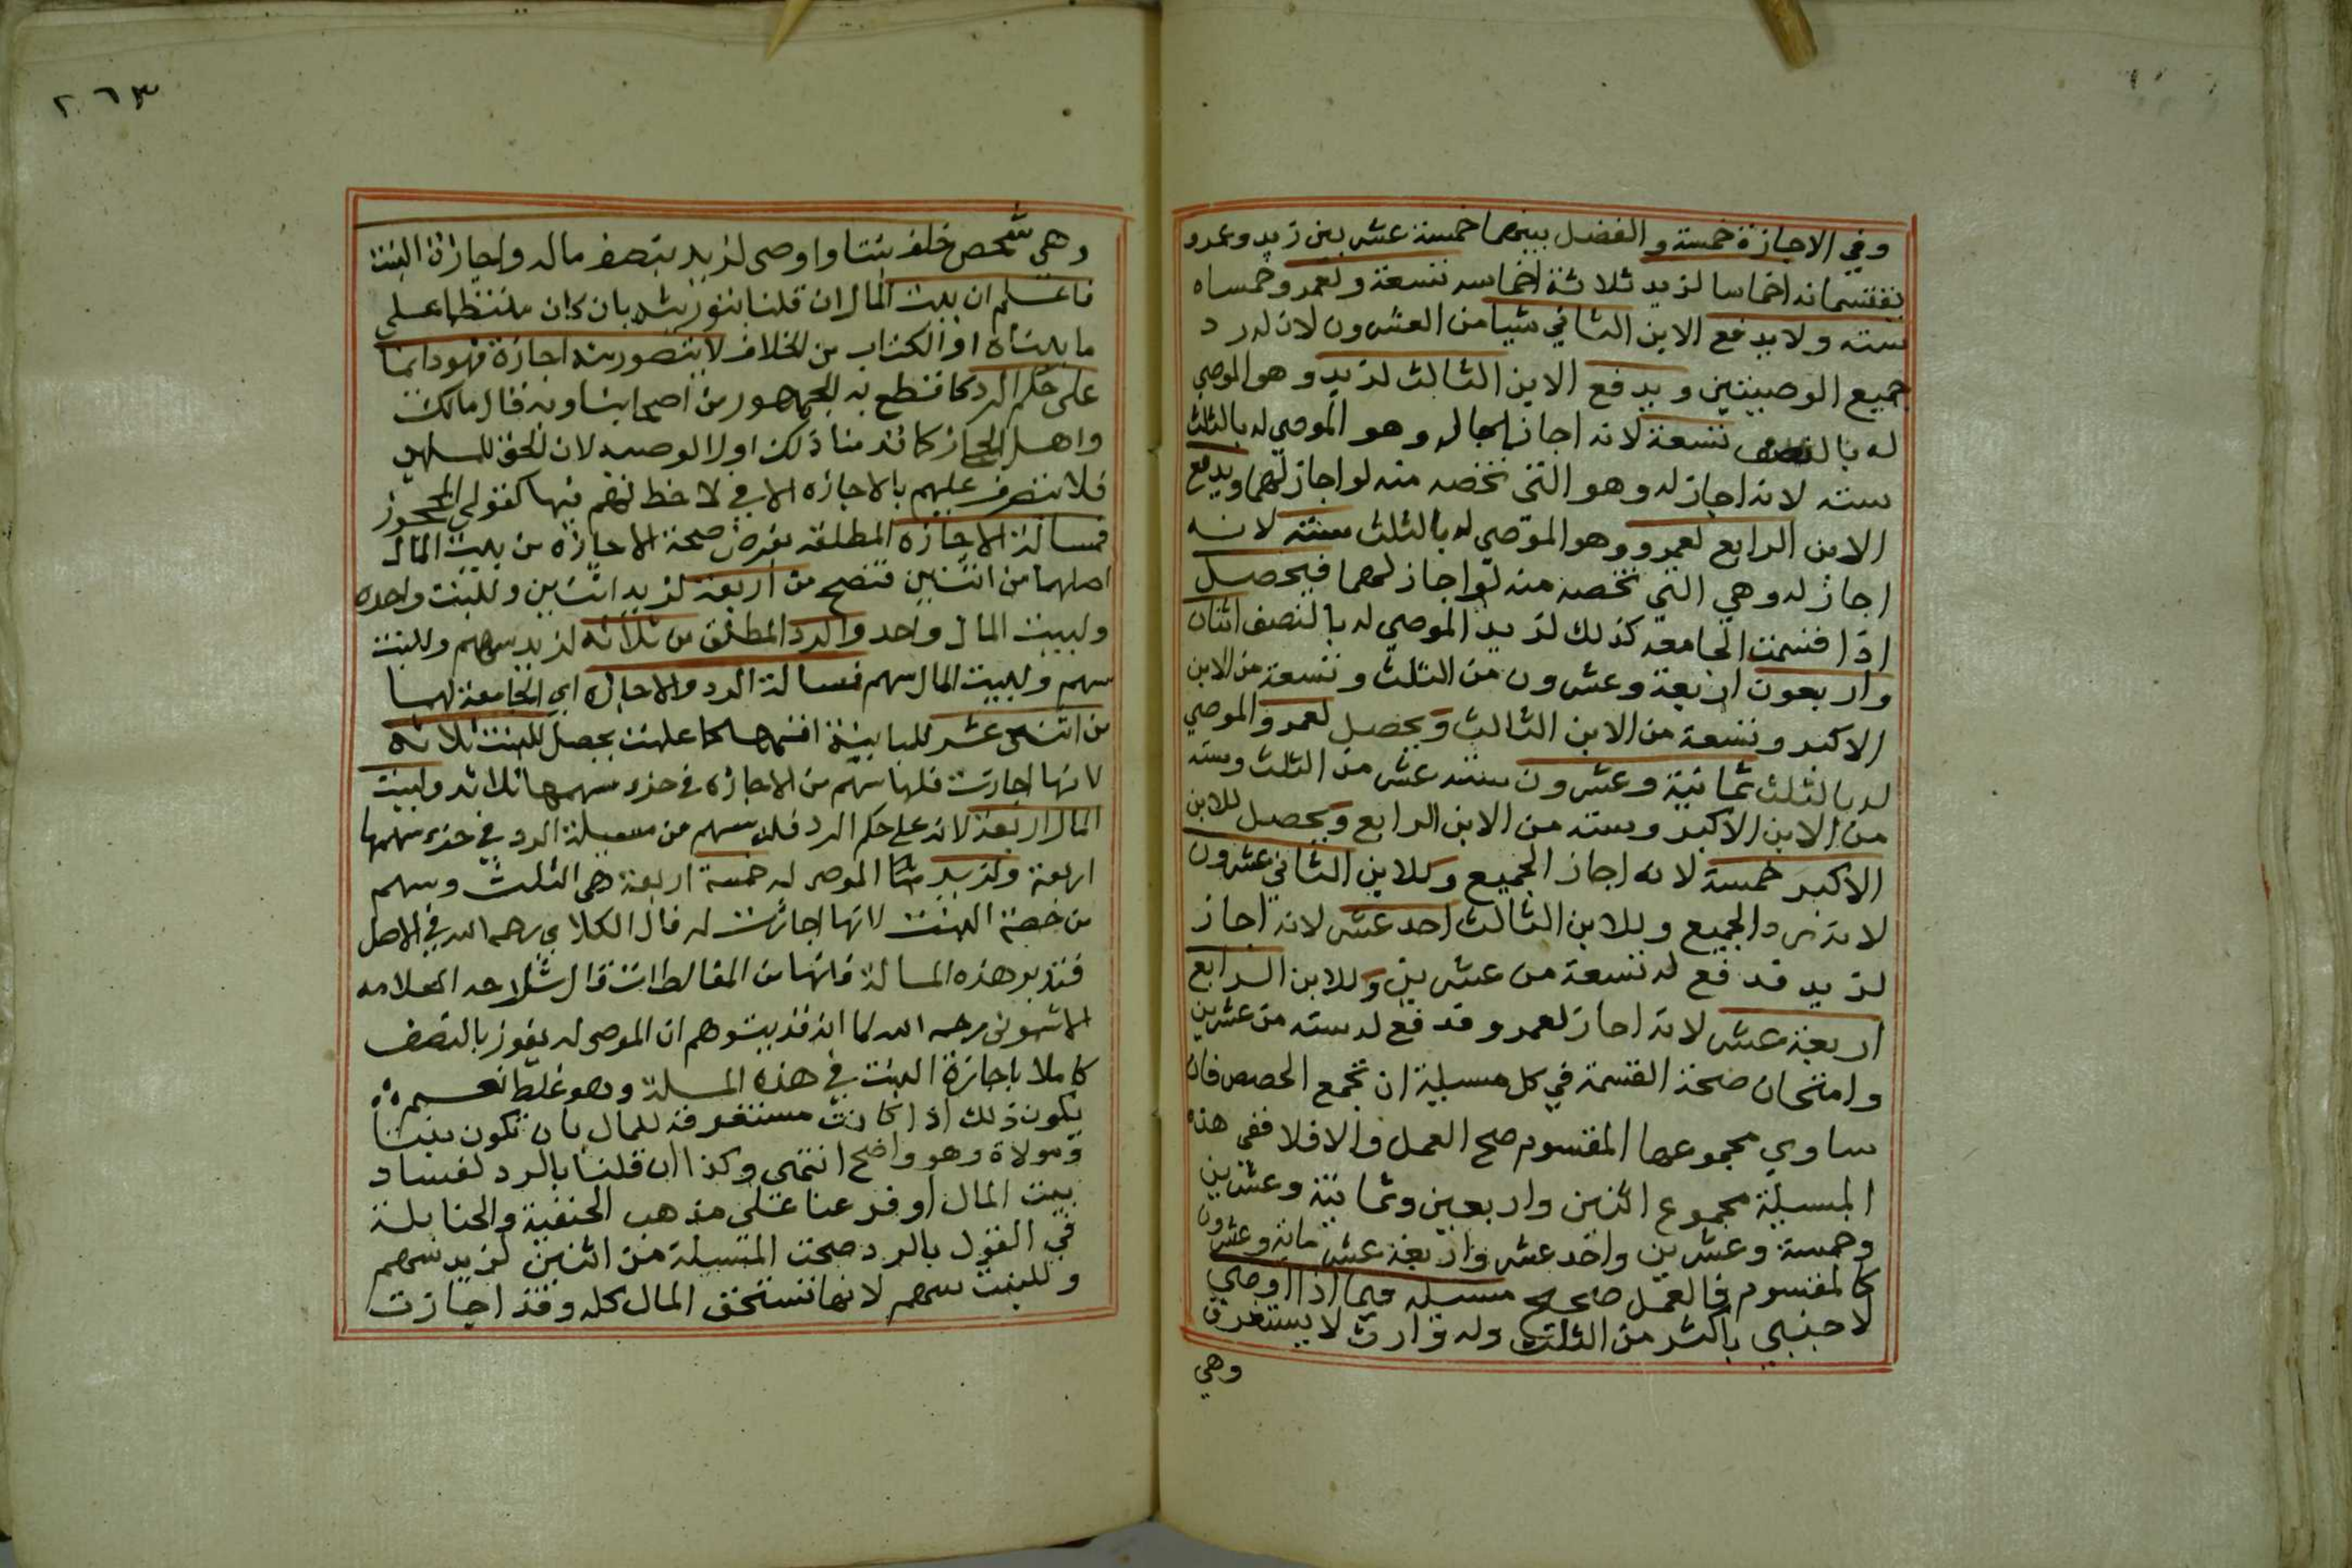 وفي الاجازة خمسة و الفضل بينهما خمسة عشر بين زيد وعمرو
يقتسمانه اخماسا لزيد ثلاثة اخماسه تسعة ولعمرو خمساه
سته ولا يدفع الابن الثاني شيا من العشرون لانه رد
جميع الوصيتين ويدفع الابن الثالث لزيد وهو الموصي
له بالنصف تسعة لانه اجاز له وهو الموصي له بالثلث
سته لانه اجاز له وهو التي تخصه منه لو اجاز لهما ويدفع
الابن الرابع لعمرو وهو الموصي له بالثلث ستة لانه
اجاز له وهي التي تخصه منه لو اجاز لهما فيحصل
اذا قسمت الجامعه كذلك لزيد الموصي له بالنصف اثنان
واربعون اربعة وعشرون من الثلث وتسعة من الابن
الاكبر وتسعة من الابن الثالث ويحصل لعمرو الموصي
له بالثلث ثمانية وعشرون ستة عشر من الثلث وسته
من الابن الاكبر وسته من الابن الرابع ويحصل للابن
الاكبر خمسة لانه اجاز الجميع وللابن الثاني عشرون
لانه رد الجميع وللابن الثالث احد عشر لانه اجاز
لزيد فدفع له تسعة من عشرين وللابن الرابع
اربعة عشر لانه اجاز لعمرو فدفع له سته من عشرين
وامتحان صحة القسمة في كل مسيلة ان تجمع الحصص فان
ساوي مجموعها المقسوم صح العمل والا فلا ففي هذه
المسيلة مجموع اثنين واربعين وثمانية وعشرين
وخمسة وعشرين واحد عشر واربعة عشر ماية وعشرون
كالمقسوم فالعمل صحيح مسيله فيما اذا اوصي
لاجنبي باكثر من الثلث وله وارث لا يستغرق
وهي
٢٦٣
وهي شخص خلف بنتا واوصى لزيد بنصف ماله واجازة البنت
فاعلم ان بيت المال ان قلنا بتوريثه بان كان منتظما على
ما بيناه اول الكتاب من الخلاف لا يتصور منه اجازة فهو دايما
على حكم الرد كما قطع به الجمهور من اصحابنا وبه قال مالك
واهل الحجاز كما قدمنا ذلك اول الوصيه لان الحق للمسلمين
فلا يتصرف عليهم بالاجازه الا في لا حظ لهم فيها كقولي المحجوز
فمسالة الاجازه المطلقه بفرض صحة الاجازه من بيت المال
اصلهما من اثنين فتصح من اربعة لزيد اثنين وللبنت واحده
ولبيت المال واحد والرد المطلق من ثلاثه لزيد سهم وللبنت
سهم ولبيت المال سهم فمسالة الرد والاجازه اي الجامعة لهما
من اثني عشر للمباينة اقسمها كما علمت يحصل للبنت ثلاثه
لانها اجازت فلها سهم من الاجازه في جزء سهمها ثلاثه ولبيت
المال اربعة لانه على حكم الرد فله سهم من مسيلة الرد في جزء سهمها
اربعة ولزيد الموصى له خمسة اربعة هي الثلث وسهم
من حصة البنت لانها اجازت له قال الكلاي رحمه الله في الاصل
فتدبر هذه المسالة فانها من المغالطات قال شارحه العلامه
الاشموني رحمه الله لما انه قد يتوهم ان الموصى له يفوز بالنصف
كاملا باجازة البنت في هذه المسلة وهو غلط نعم
يكون ذلك اذا كانت مستغرقة للمال بان تكون بنتا
ومولاة وهو واضح انتهى وكذا ان قلنا بالرد لفساد
بيت المال او فرعنا على مذهب الحنفية والحنابلة
في القول بالرد صحت المسيلة من اثنين لزيد سهم
وللبنت سهم لانها تستحق المال كله وقد اجازت